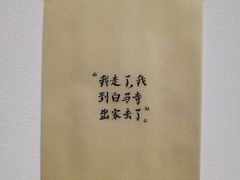 “我走了，我
到白马寺
出家去了”。